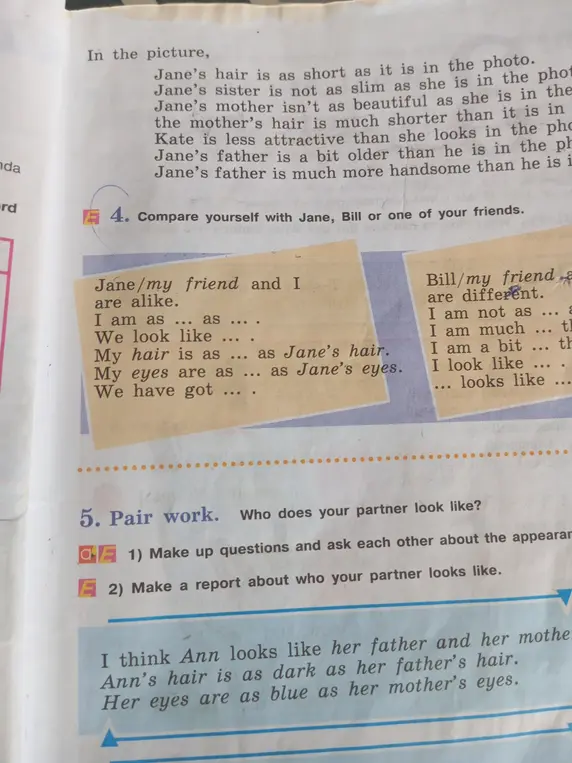 In the picture,
Jane's hair is as short as it is in the photo.
Jane's sister is not as slim as she is in the
Jane's mother isn't as beautiful as she is in the
the mother's hair is much shorter than it is in
Kate is less attractive than she looks in the
Jane's father is a bit older than he is in the
Jane's father is much more handsome than he is
rd
E 4. Compare yourself with Jane, Bill or one of your friends.
Jane/my friend and I
are alike.
I am as ... as ... .
We look like ... .
My hair is as ... as Jane's hair.
My eyes are as ... as Jane's eyes.
We have got ... .
Bill/my friend
are different.
I am not as ...
I am much ...
I am a bit ...
I look like ... .
... looks like ...
5. Pair work. Who does your partner look like?
E 1) Make up questions and ask each other about the
E 2) Make a report about who your partner looks like.
I think Ann looks like her father and her
Ann's hair is as dark as her father's hair.
Her eyes are as blue as her mother's eyes.